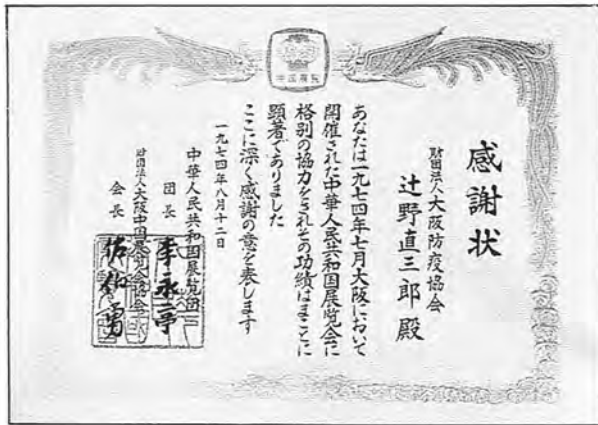 中国展覧
感謝状
財団法人大阪防疫協会
辻野直三郎殿
あなたは一九七四年七月大阪において
開催された中華人民共和国展覧会に
格別の協力をされその功績はまことに
顕著でありました
ここに深く感謝の意を表します
一九七四年八月十二日
中華人民共和国展覧団
団長 李永亭
財団法人大阪中国展覧会協会
会長 佐伯勇